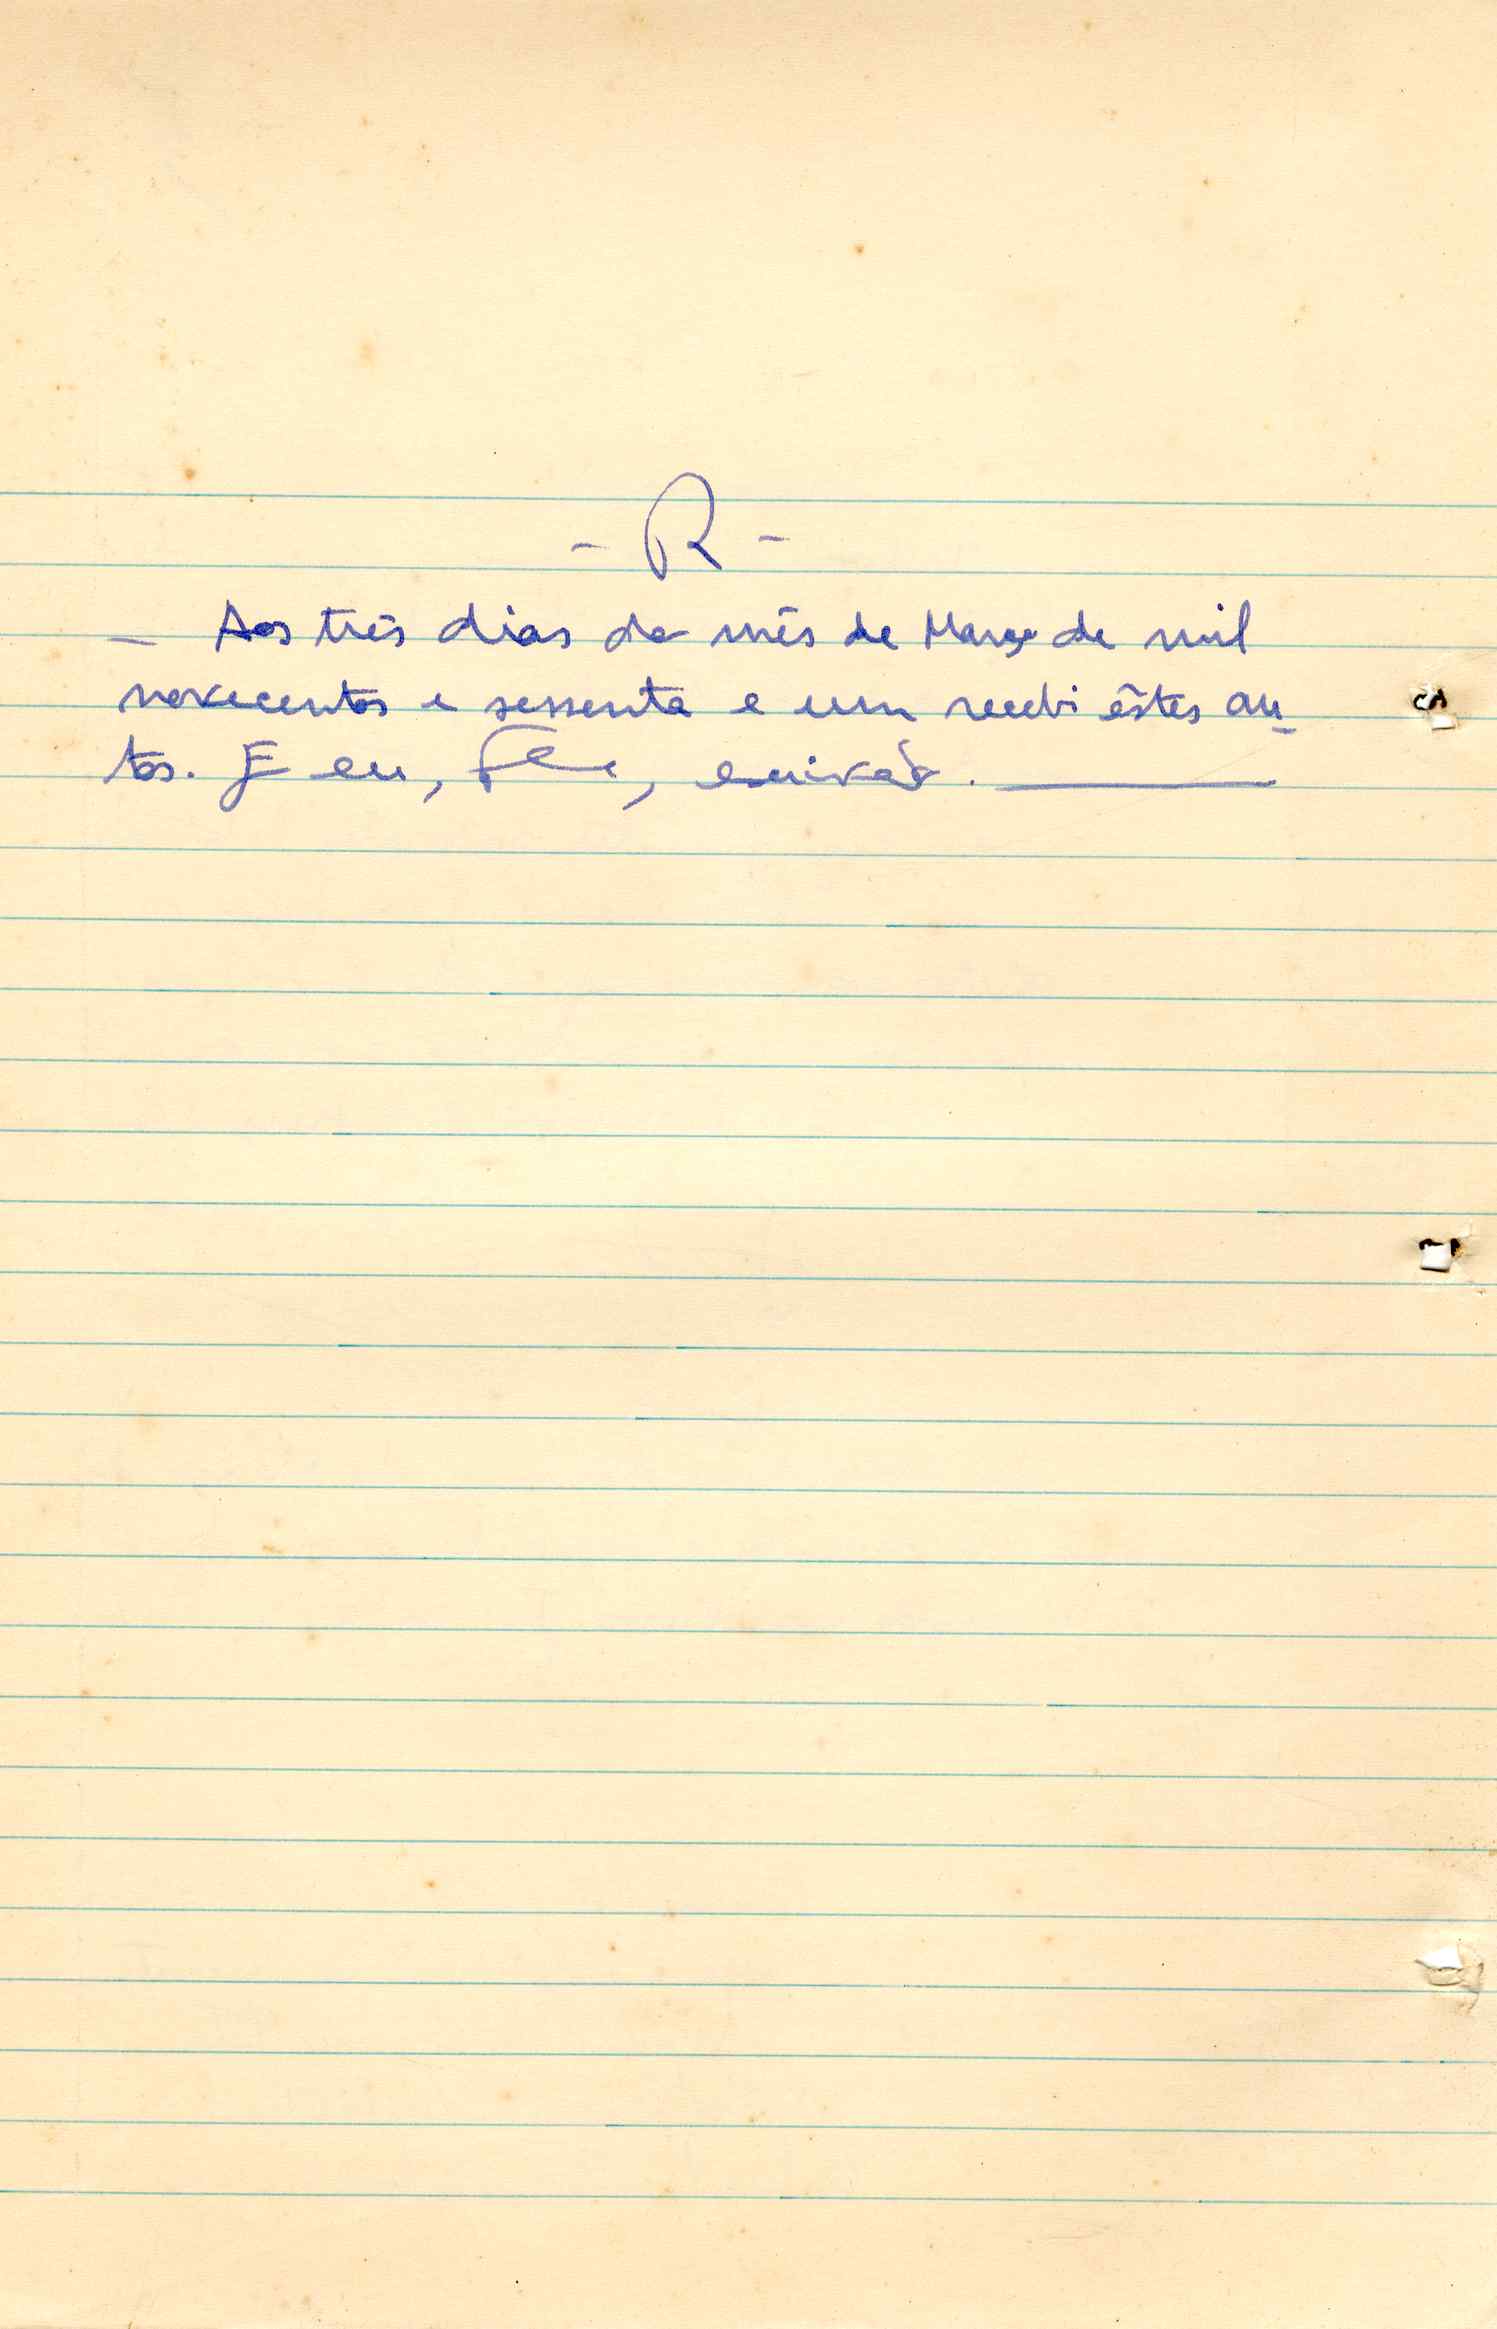 - R -
- Aos três dias do mês de Março de mil
novecentos e sessenta e um recebi êstes au-
tos. E eu, , escrivão.